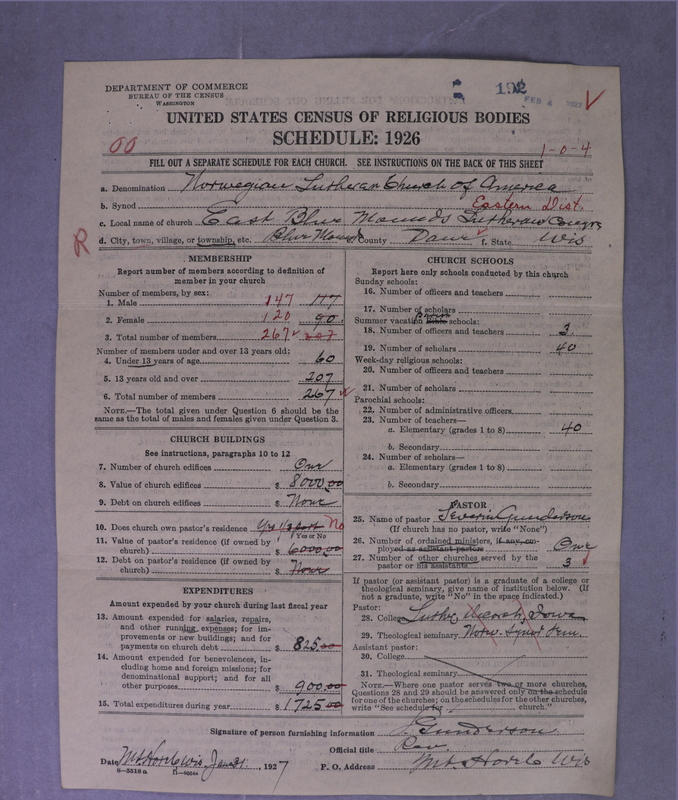 DEPARTMENT OF COMMERCE
BUREAU OF THE CENSUS
WASHINGTON
192
FEB 4 1927
UNITED STATES CENSUS OF RELIGIOUS BODIES
SCHEDULE: 1926
00
1-0-4
FILL OUT A SEPARATE SCHEDULE FOR EACH CHURCH. SEE INSTRUCTIONS ON THE BACK OF THIS SHEET
a. Denomination Norwegian Lutheran Church of America
b. Synod Eastern Dist.
c. Local name of church East Blue Mounds Lutheran Congr
d. City, town, village, or township, etc. Blue Mounds County Dane f. State Wis
R
MEMBERSHIP
Report number of members according to definition of
member in your church
Number of members, by sex:
1. Male 147 117
2. Female 120 90
3. Total number of members 267 207
Number of members under and over 13 years old:
4. Under 13 years of age 60
5. 13 years old and over 207
6. Total number of members 267
NOTE.—The total given under Question 6 should be the
same as the total of males and females given under Question 3.
CHURCH BUILDINGS
See instructions, paragraphs 10 to 12
7. Number of church edifices One
8. Value of church edifices $ 8000.00
9. Debt on church edifices $ None
10. Does church own pastor's residence Yes 1/3 part No
Yes or No
11. Value of pastor's residence (if owned by
church) $ 6000.00
12. Debt on pastor's residence (if owned by
church) $ None
EXPENDITURES
Amount expended by your church during last fiscal year
13. Amount expended for salaries, repairs,
and other running expenses; for im-
provements or new buildings; and for
payments on church debt $ 825.00
14. Amount expended for benevolences, in-
cluding home and foreign missions; for
denominational support; and for all
other purposes $ 900.00
15. Total expenditures during year $ 1725.00
CHURCH SCHOOLS
Report here only schools conducted by this church
Sunday schools:
16. Number of officers and teachers
17. Number of scholars
Summer vacation Bible schools:
18. Number of officers and teachers 3
19. Number of scholars 40
Week-day religious schools:
20. Number of officers and teachers
21. Number of scholars
Parochial schools:
22. Number of administrative officers
23. Number of teachers—
a. Elementary (grades 1 to 8) 40
b. Secondary
24. Number of scholars—
a. Elementary (grades 1 to 8)
b. Secondary
PASTOR
25. Name of pastor Severin Gunderson
(If church has no pastor, write "None")
26. Number of ordained ministers, if any, em-
ployed as assistant pastors One
27. Number of other churches served by the
pastor or his assistants 3
If pastor (or assistant pastor) is a graduate of a college or
theological seminary, give name of institution below. (If
not a graduate, write "No" in the space indicated.)
Pastor:
28. College Luther, Decorah, Iowa
29. Theological seminary Norw. Synod Sem.
Assistant pastor:
30. College
31. Theological seminary
NOTE.—Where one pastor serves two or more churches,
Questions 28 and 29 should be answered only on the schedule
for one of the churches; on the schedules for the other churches,
write "See schedule for church."
Signature of person furnishing information S. Gunderson
Official title Rev.
Date Mt. Horeb Wis. Jan 31, 1927 P. O. Address Mt. Horeb Wis
8—5518a